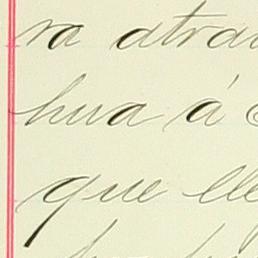 ra atra
hua á
que ele